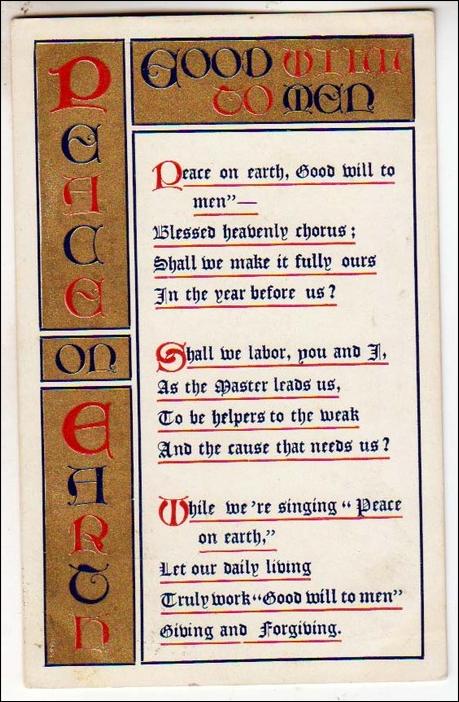 PEACE
ON
EARTH
GOOD WILL
TO MEN
Peace on earth, Good will to
men"—
Blessed heavenly chorus;
Shall we make it fully ours
In the year before us?
Shall we labor, you and I,
As the Master leads us,
To be helpers to the weak
And the cause that needs us?
While we're singing "Peace
on earth,"
Let our daily living
Truly work "Good will to men"
Giving and Forgiving.